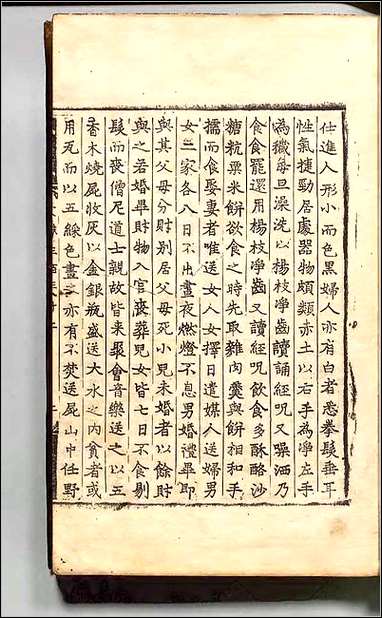 仕進人形小而色黑婦人亦有白者悉拳髮垂耳
性氣捷勁居處器物頗類赤土以右手為淨左手
為穢每旦澡洗以楊枝淨齒讀誦經呪又澡洒乃
食食罷還用楊枝淨齒又讀經呪飲食多酥酪沙
糖秔粟米餅欲食之時先取雜肉羹與餅相和手
擩而食娶妻者唯送女人女擇日遣媒人送婦男
女二家各八日不出晝夜燃燈不息男婚禮畢即
與其父母分財別居父母死小兒未婚者以餘財
與之若婚畢財物入官喪葬兒女皆七日不食剔
髮而喪僧尼道士親故皆來聚會音樂送之以五
香木燒屍收灰以金銀瓶盛送大水之內貧者或
用瓦而以五綵色畫之亦有不焚送屍山中任野